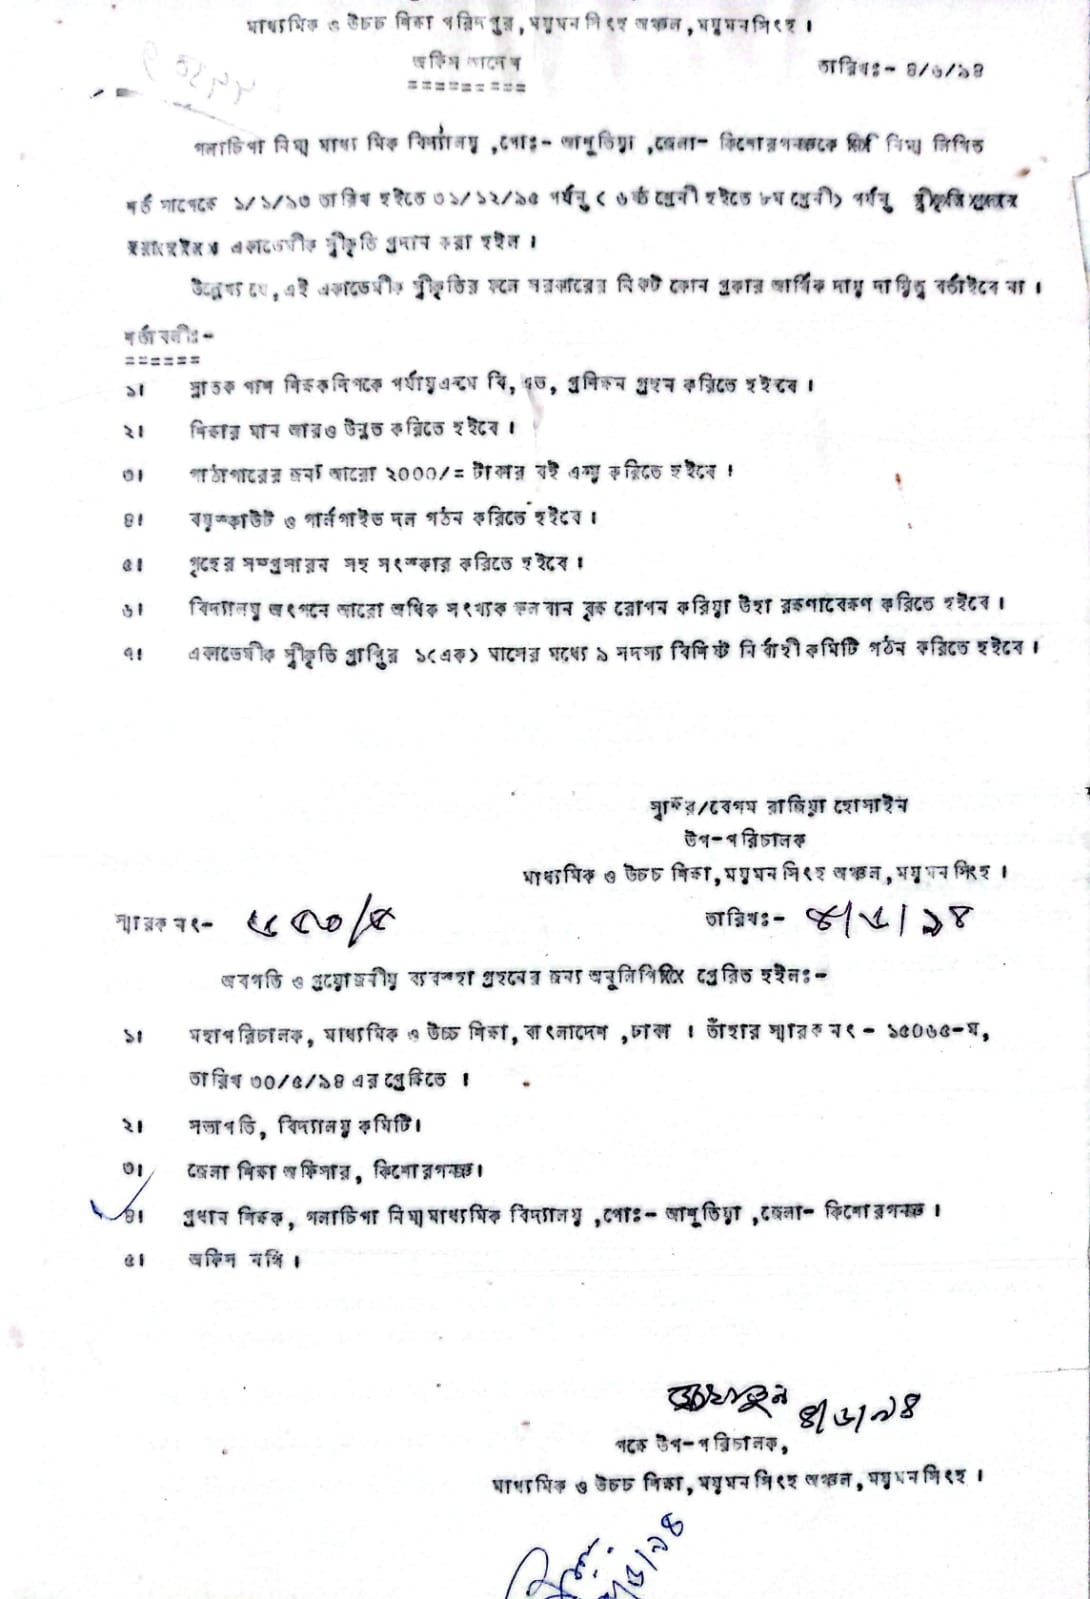 মাধ্যমিক ও উচচ শিক্ষা পরিদপ্তর, ময়মনসিংহ অঞ্চল, ময়মনসিংহ ।
অফিস আদেশ
তারিখঃ- ৪/৬/৯৪
=========
গলাচিপা নিম্ন মাধ্যমিক বিদ্যালয় ,পোঃ- আশুতিয়া ,জেলা- কিশোরগন্জকে নিম্ন লিখিত
শর্ত সাপেক্ষে ১/১/৯৩ তারিখ হইতে ৩১/১২/৯৫ পর্যন্ত ( ৬ষ্ঠ শ্রেনী হইতে ৮ম শ্রেনী) পর্যন্ত
একাডেমীক স্বীকৃতি প্রদান করা হইল ।
উল্লেখ্য যে, এই একাডেমীক স্বীকৃতির ফলে সরকারের নিকট কোন প্রকার আর্থিক দায় দায়িত্ব বর্তাইবে না ।
শর্তাবলীঃ-
======
১। স্নাতক পাশ শিক্ষকদিগকে পর্যায়ক্রমে বি, এড, প্রশিক্ষন গ্রহন করিতে হইবে ।
২। শিক্ষার মান আরও উন্নত করিতে হইবে ।
৩। পাঠাগারের জন্য আরো ২০০০/= টাকার বই ক্রয় করিতে হইবে ।
৪। বয়স্কাউট ও গার্লগাইড দল গঠন করিতে হইবে ।
৫। গৃহের সম্প্রসারন সহ সংস্কার করিতে হইবে ।
৬। বিদ্যালয় অংগনে আরো অধিক সংখ্যক ফলবান বৃক্ষ রোপন করিয়া উহা রক্ষণাবেক্ষণ করিতে হইবে ।
৭। একাডেমীক স্বীকৃতি প্রাপ্তির ১(এক) মাসের মধ্যে ৯ সদস্য বিশিষ্ট নির্বাহী কমিটি গঠন করিতে হইবে ।
স্বাক্ষর/বেগম রাজিয়া হোসাইন
উপ-পরিচালক
মাধ্যমিক ও উচচ শিক্ষা, ময়মনসিংহ অঞ্চল, ময়মনসিংহ ।
স্মারক নং- ৬৫৩/৫ তারিখঃ- ৪/৬/৯৪
অবগতি ও প্রয়োজনীয় ব্যবস্হা গ্রহনের জন্য অনুলিপি প্রেরিত হইলঃ-
১। মহাপরিচালক, মাধ্যমিক ও উচ্চ শিক্ষা, বাংলাদেশ ,ঢাকা । তাঁহার স্মারক নং - ১৫০৬৫-ম,
তারিখ ৩০/৫/৯৪ এর প্রেক্ষিতে ।
২। সভাপতি, বিদ্যালয় কমিটি।
৩। জেলা শিক্ষা অফিসার, কিশোরগন্জ।
৪। প্রধান শিক্ষক, গলাচিপা নিম্ন মাধ্যমিক বিদ্যালয় ,পোঃ- আশুতিয়া ,জেলা- কিশোরগন্জ ।
৫। অফিস নথি ।
৪/৬/৯৪
পক্ষে উপ-পরিচালক,
মাধ্যমিক ও উচচ শিক্ষা, ময়মনসিংহ অঞ্চল, ময়মনসিংহ ।